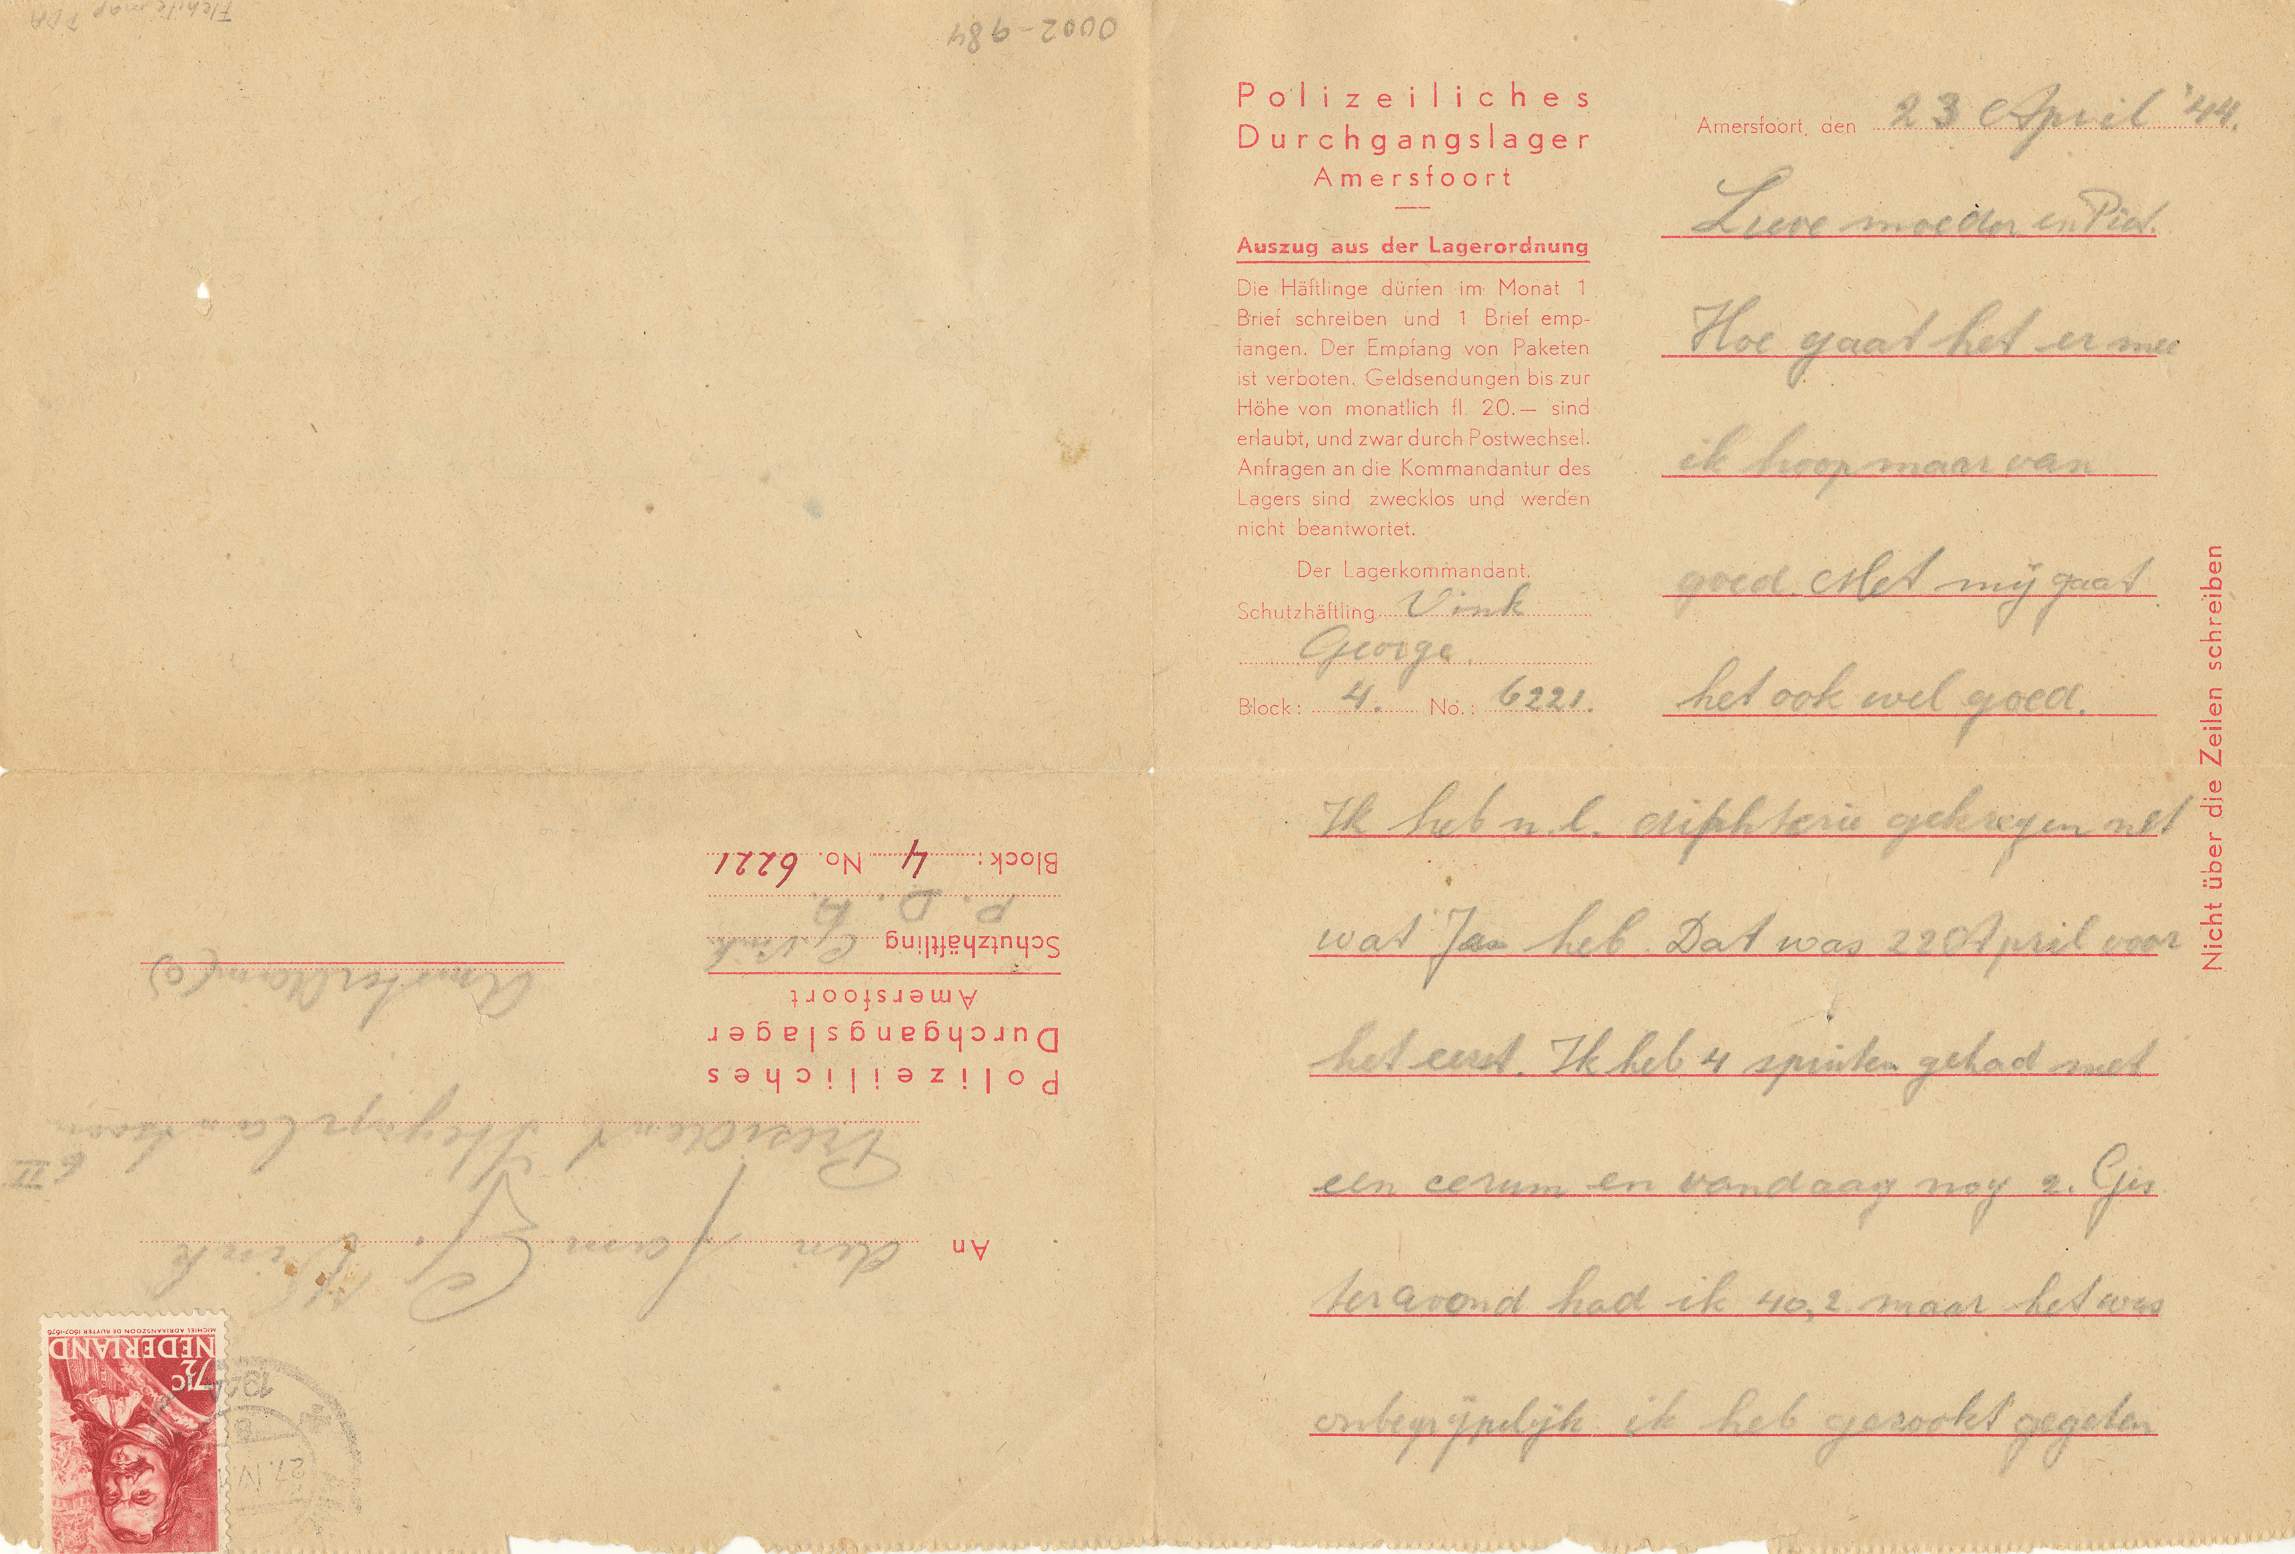 0002-984
Polizeiliches
Durchgangslager
Amersfoort
Auszug aus der Lagerordnung
Die Häftlinge dürfen im Monat 1
Brief schreiben und 1 Brief emp-
fangen. Der Empfang von Paketen
ist verboten. Geldsendungen bis zur
Höhe von monatlich fl. 20.— sind
erlaubt, und zwar durch Postwechsel.
Anfragen an die Kommandantur des
Lagers sind zwecklos und werden
nicht beantwortet.
Der Lagerkommandant.
Schutzhäftling Vink
George.
Block: 4. No.: 6221.
Amersfoort, den 23 April '44.
Lieve moeder en Piet.
Hoe gaat het er mee
ik hoop maar van
goed. Met mij gaat
het ook wel goed.
Ik heb n.l. diphterie gekregen net
wat Jan heb. Dat was 22 April voor
het eerst. Ik heb 4 spuiten gehad met
een cerum en vandaag nog 2. Gis
teravond had ik 40,2 maar het was
onbegrijpelijk ik heb gerookt gegeten
Nicht über die Zeilen schreiben
An den Fam. G. Vink
President Steynplantsoen
6 II
Amsterdam (O)
Polizeiliches
Durchgangslager
Amersfoort
Schutzhäftling G. Vink
P. D. A.
Block: 4 No. 6221
NEDERLAND
7½ C
MICHIEL ADRIAANSZOON DE RUYTER 1607-1676
27.IV